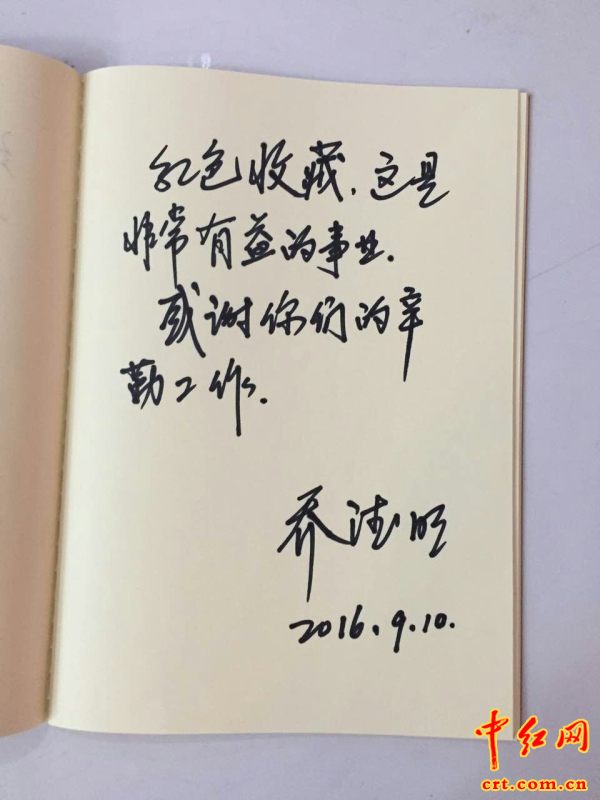 红色收藏，这是
非常有益的事业.
感谢你们的辛
勤工作.
乔
2016.9.10.
中红网
crt.com.cn